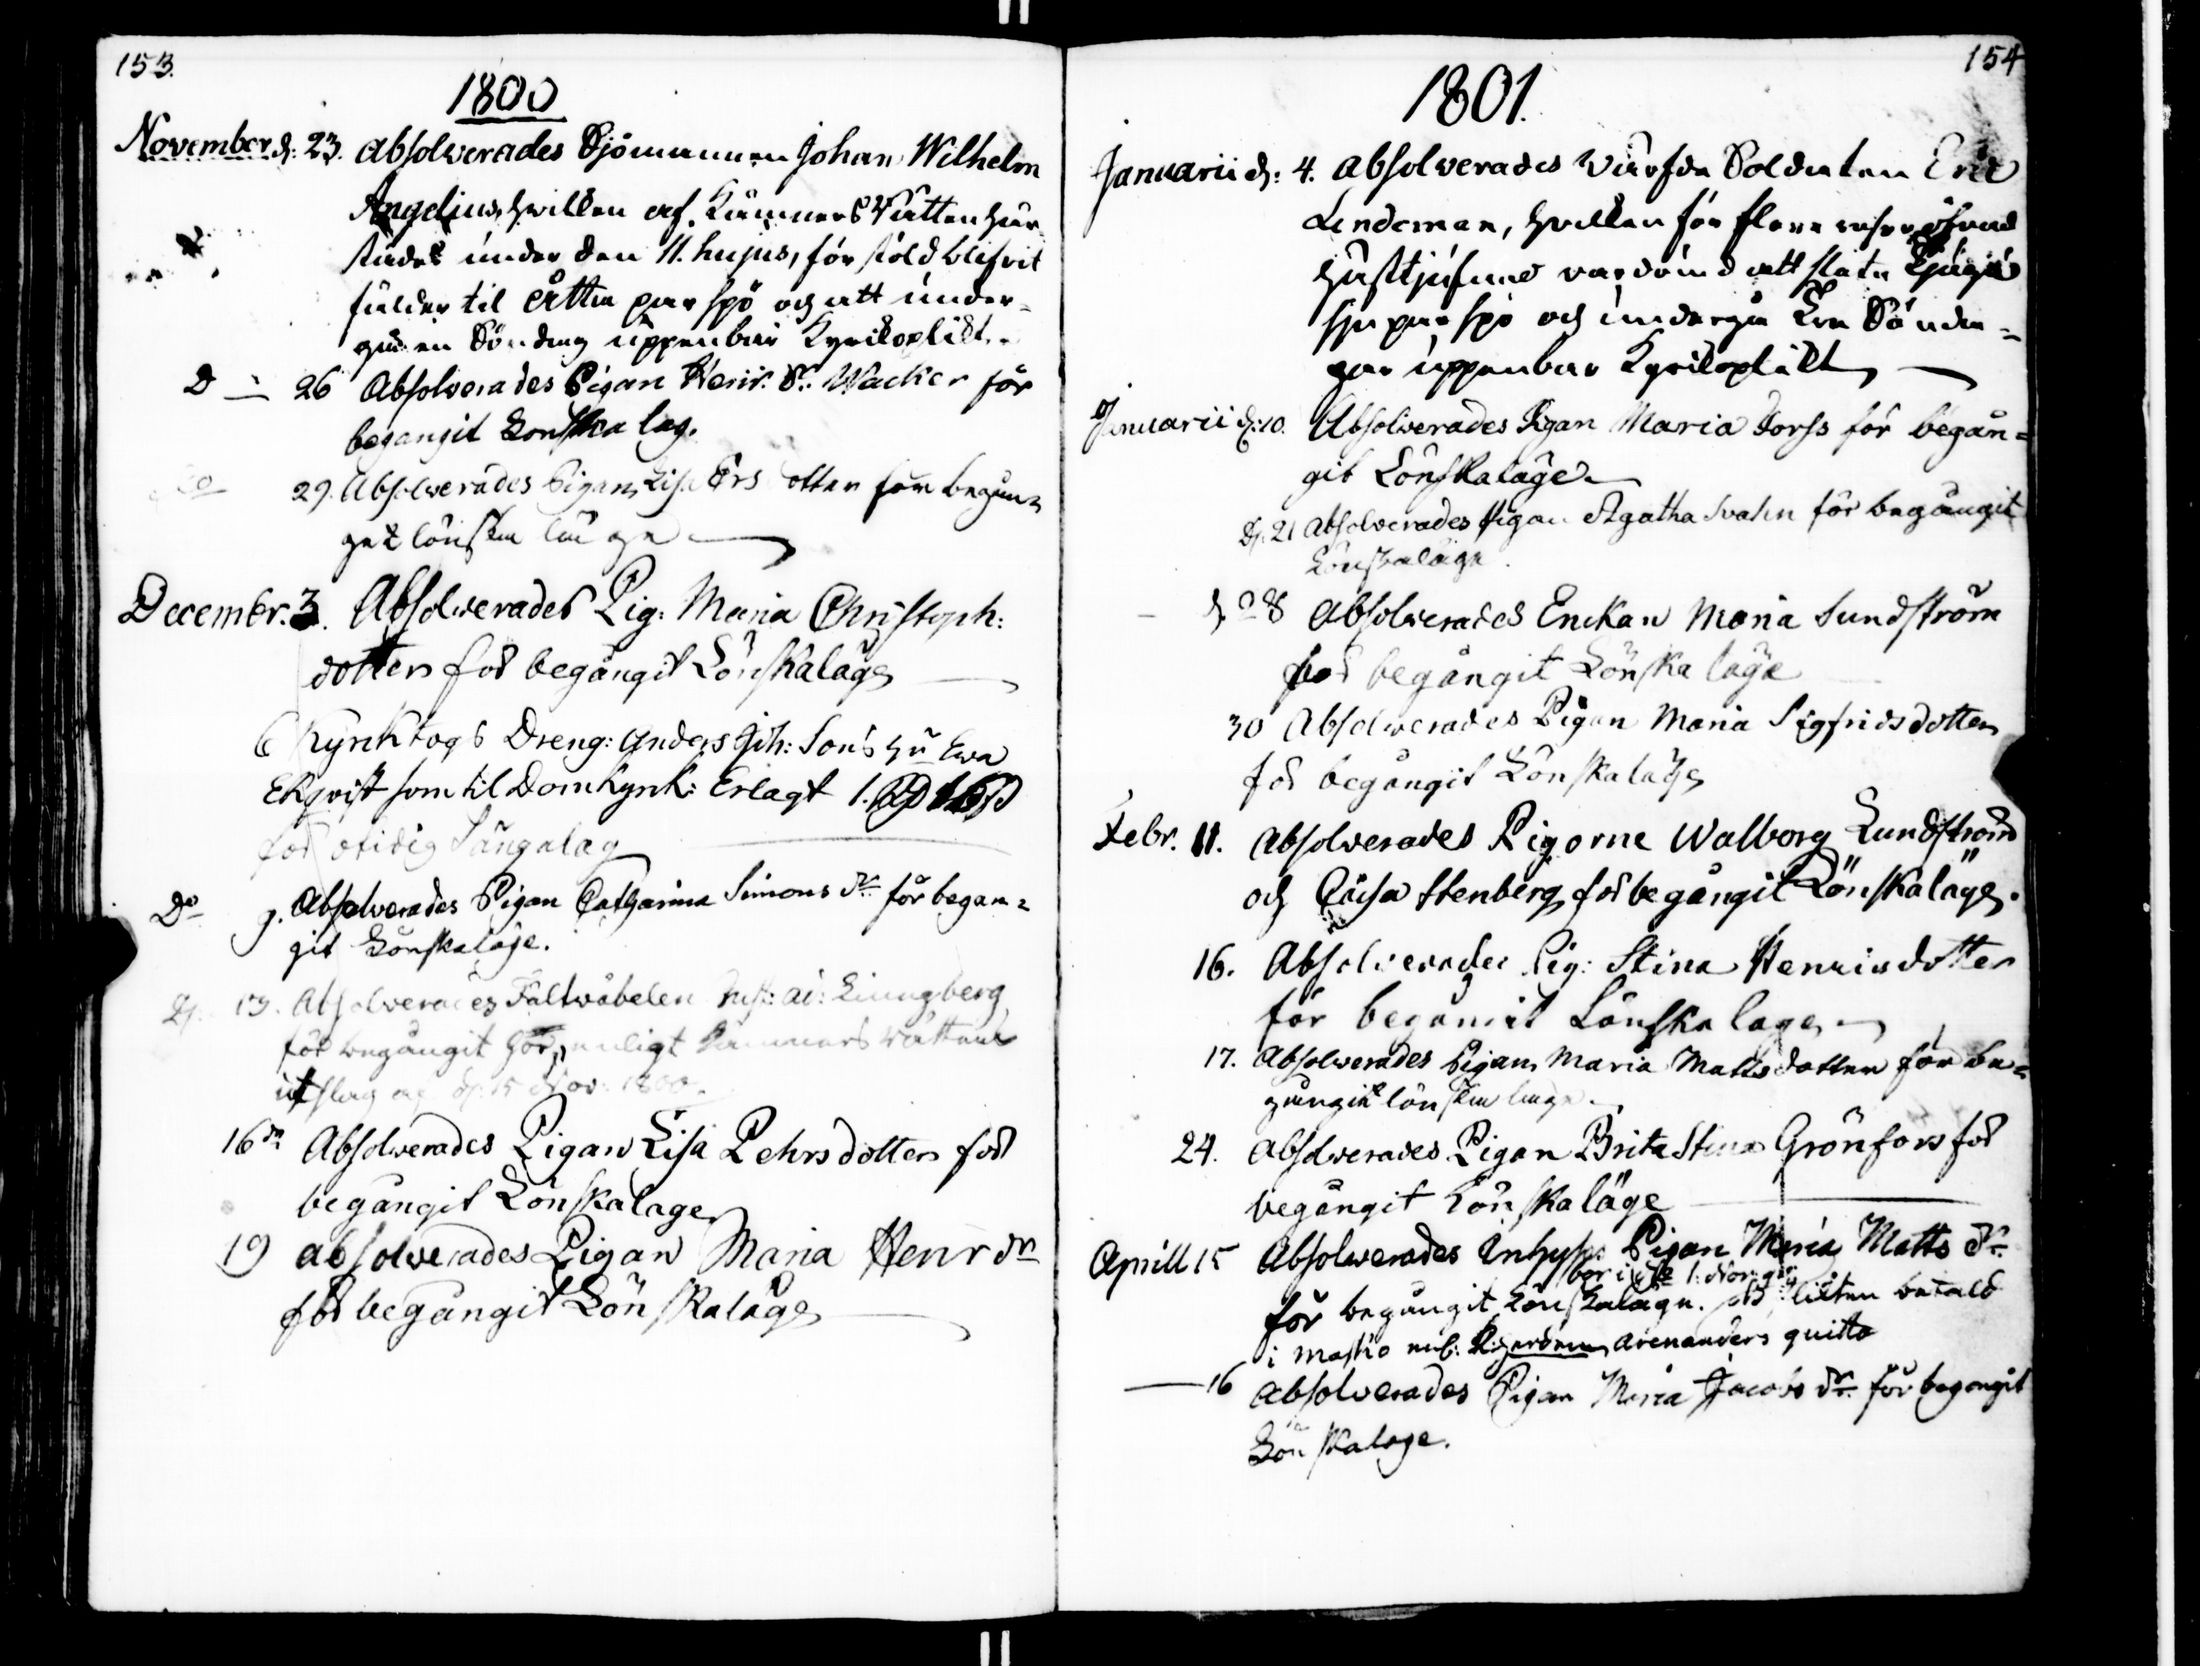 153.
1800
November d: 23. Absolverades Sjömannen Johan Wilhelm
Angelius, hwilken af Kämners Rätten här
städes under den 11. hujus, för stöld blifvit
fälder til åtta par spö och att under-
gå en Söndag uppenbar Kyrkoplikt.
D — 26 Absolverades Pigan Henr. Dr. Wacker för
begangit Lönska lag.
29. Absolverades Pigan Lisa Ersdotter för begån-
get lönska läge
Decembr. 3. Absolverades Pig: Maria Christoph:
dotter för begångit Lönskaläge
6 Kyrktogs Dreng: Anders Joh: Sons hu Ewa
Ekqvist som til Domkyrk: Erlagt 1.
för otidig Sängalag
Do 9. Absolverades Pigan Catharina Simons dr. för begån-
git Lönskaläge.
D. 13. Absolverades Fältwäbelen Liungberg
för begångit hor, enligt Kämners Rättens
utslag af d. 15 Nov: 1800.
16de Absolverades Pigan Lisa Pehrsdotter för
begångit Lönskaläge
19 Absolverades Pigan Maria Henr dr
för begångit Lönskaläge
154
1801.
Januarii d: 4. Absolverades Värfda Soldaten Eric
Lindeman, hvilken för flera resor öfvad
hästtjufnad var dömd att slita Tjugu
sju par spö och undergå Tre Sönda-
gar uppenbar Kyrkoplikt
Januarii d: 10. Absolverades Pigan Maria Forss för begån-
git Lönskaläge
d. 21 Absolverades Pigan Agatha Svahn för begångit
Lönskaläge.
d. 28 Absolverades Enckan Maria Sundström
för begångit Lönska läge
30 Absolverades Pigan Maria Sigfridsdotter
för begångit Lönskaläge
Febr. 11. Absolverades Pigorne Walborg Lundström
och Caisa Stenberg för begångit Lönskaläge.
16. Absolverades Pig: Stina Henricsdotter
för begångit Lönska lage
17. Absolverades Pigan Maria Mattsdotter för be-
gångit lönska läge.
24. Absolverades Pigan Brita Stina Grönfors för
begångit Lönskaläge
Aprill 15 Absolverades Inhyses Pigan Maria Matts dr.
för begångit Lönskaläge. NB. böten betald
i Maskio enl: Arenanders quitto
— 16 Absolverades Pigan Maria Jacobs dr. för begangit
Lönskalage.